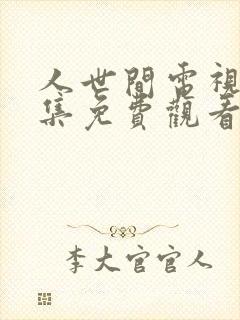 人世間電視
集免費觀看
李大官官人